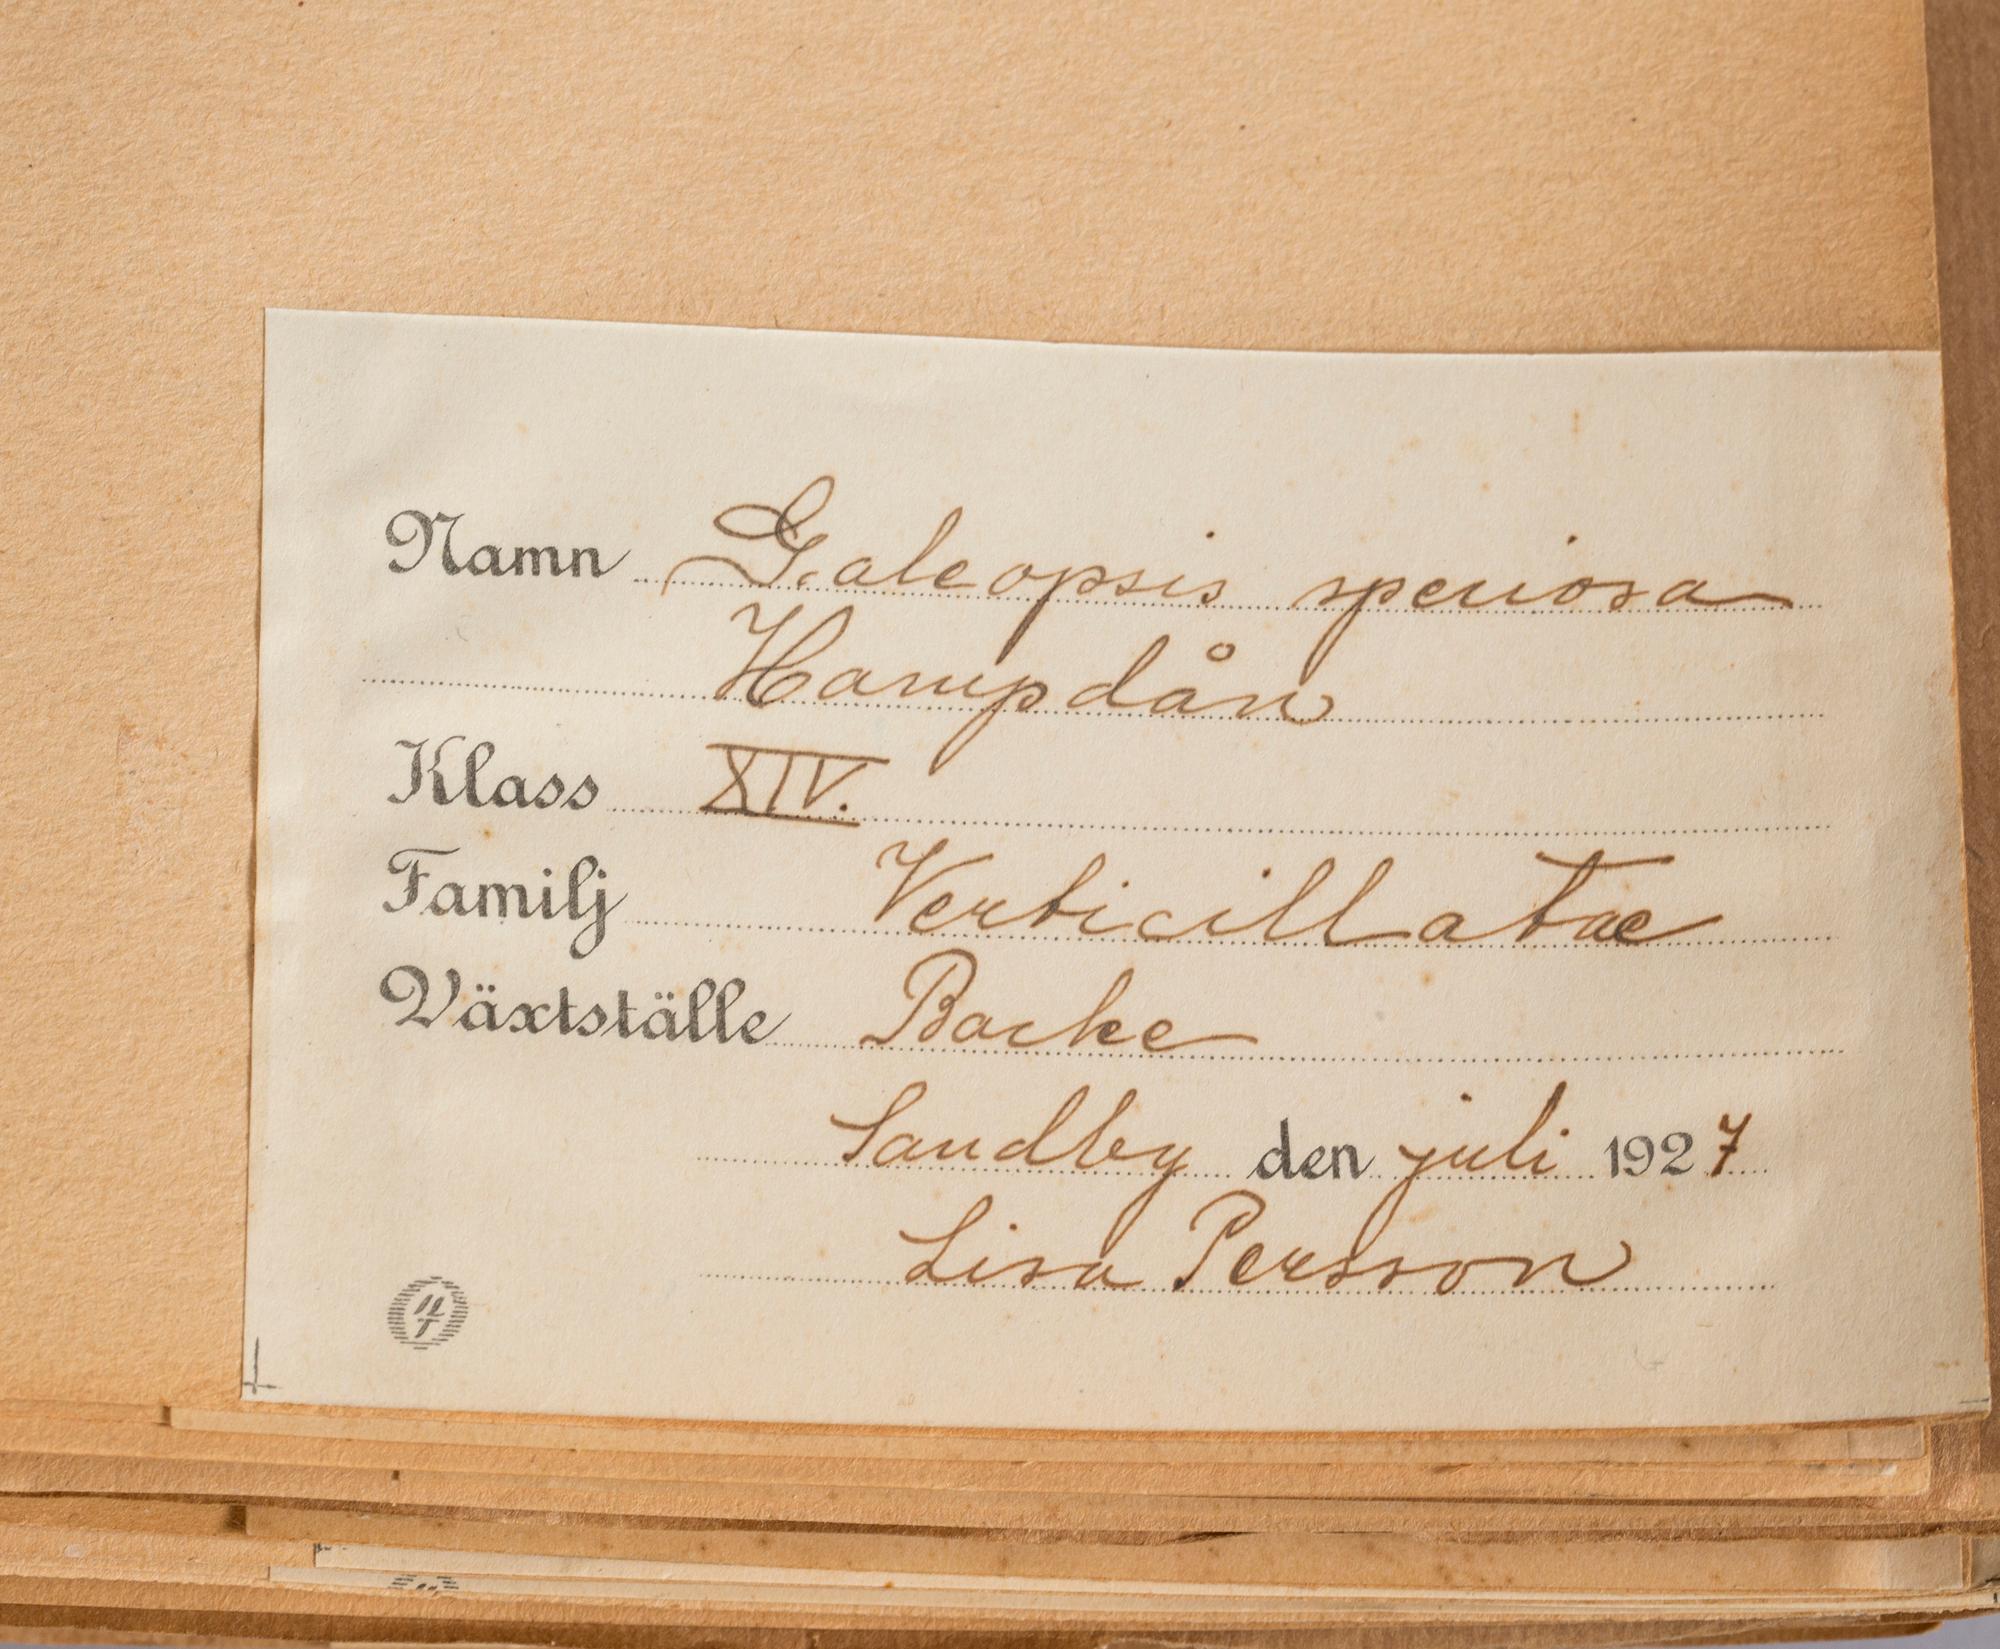 Namn Galeopsis speciosa
Hampdån
Klass XIV.
Familj Verticillatae
Växtställe Backe
Sandby den juli 1927
Lisa Persson